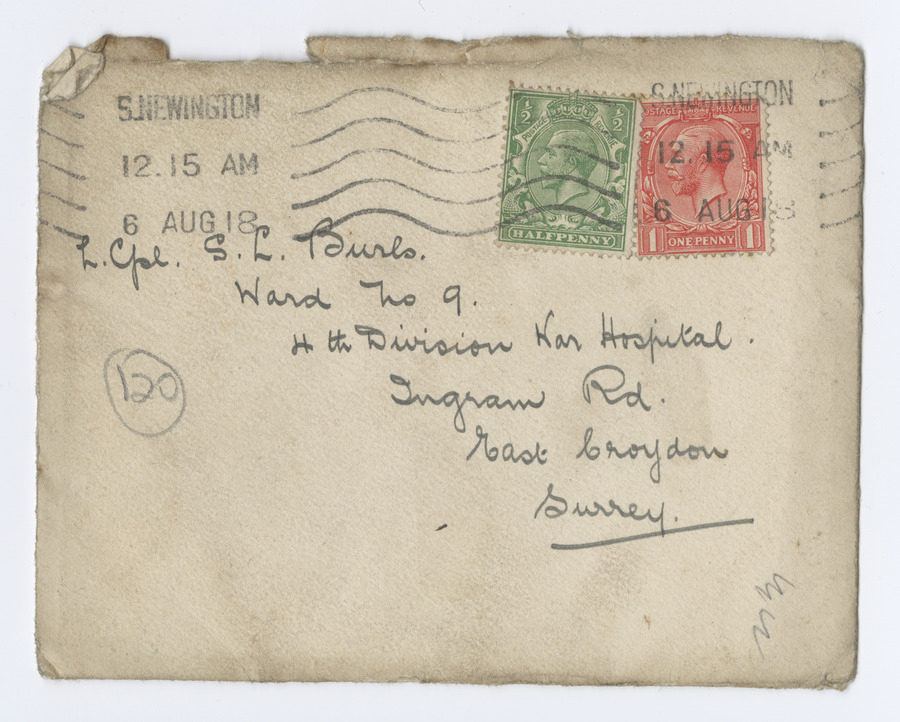 S.NEWINGTON
12.15 AM
6 AUG 18
S.NEWINGTON
12.15 AM
6 AUG 18
½ ½
POSTAGE REVENUE
HALFPENNY
POSTAGE REVENUE
1 ONE PENNY 1
L.Cpl. S. L. Burls.
Ward No 9.
4th Division War Hospital.
Ingram Rd.
East Croydon
Surrey.
120